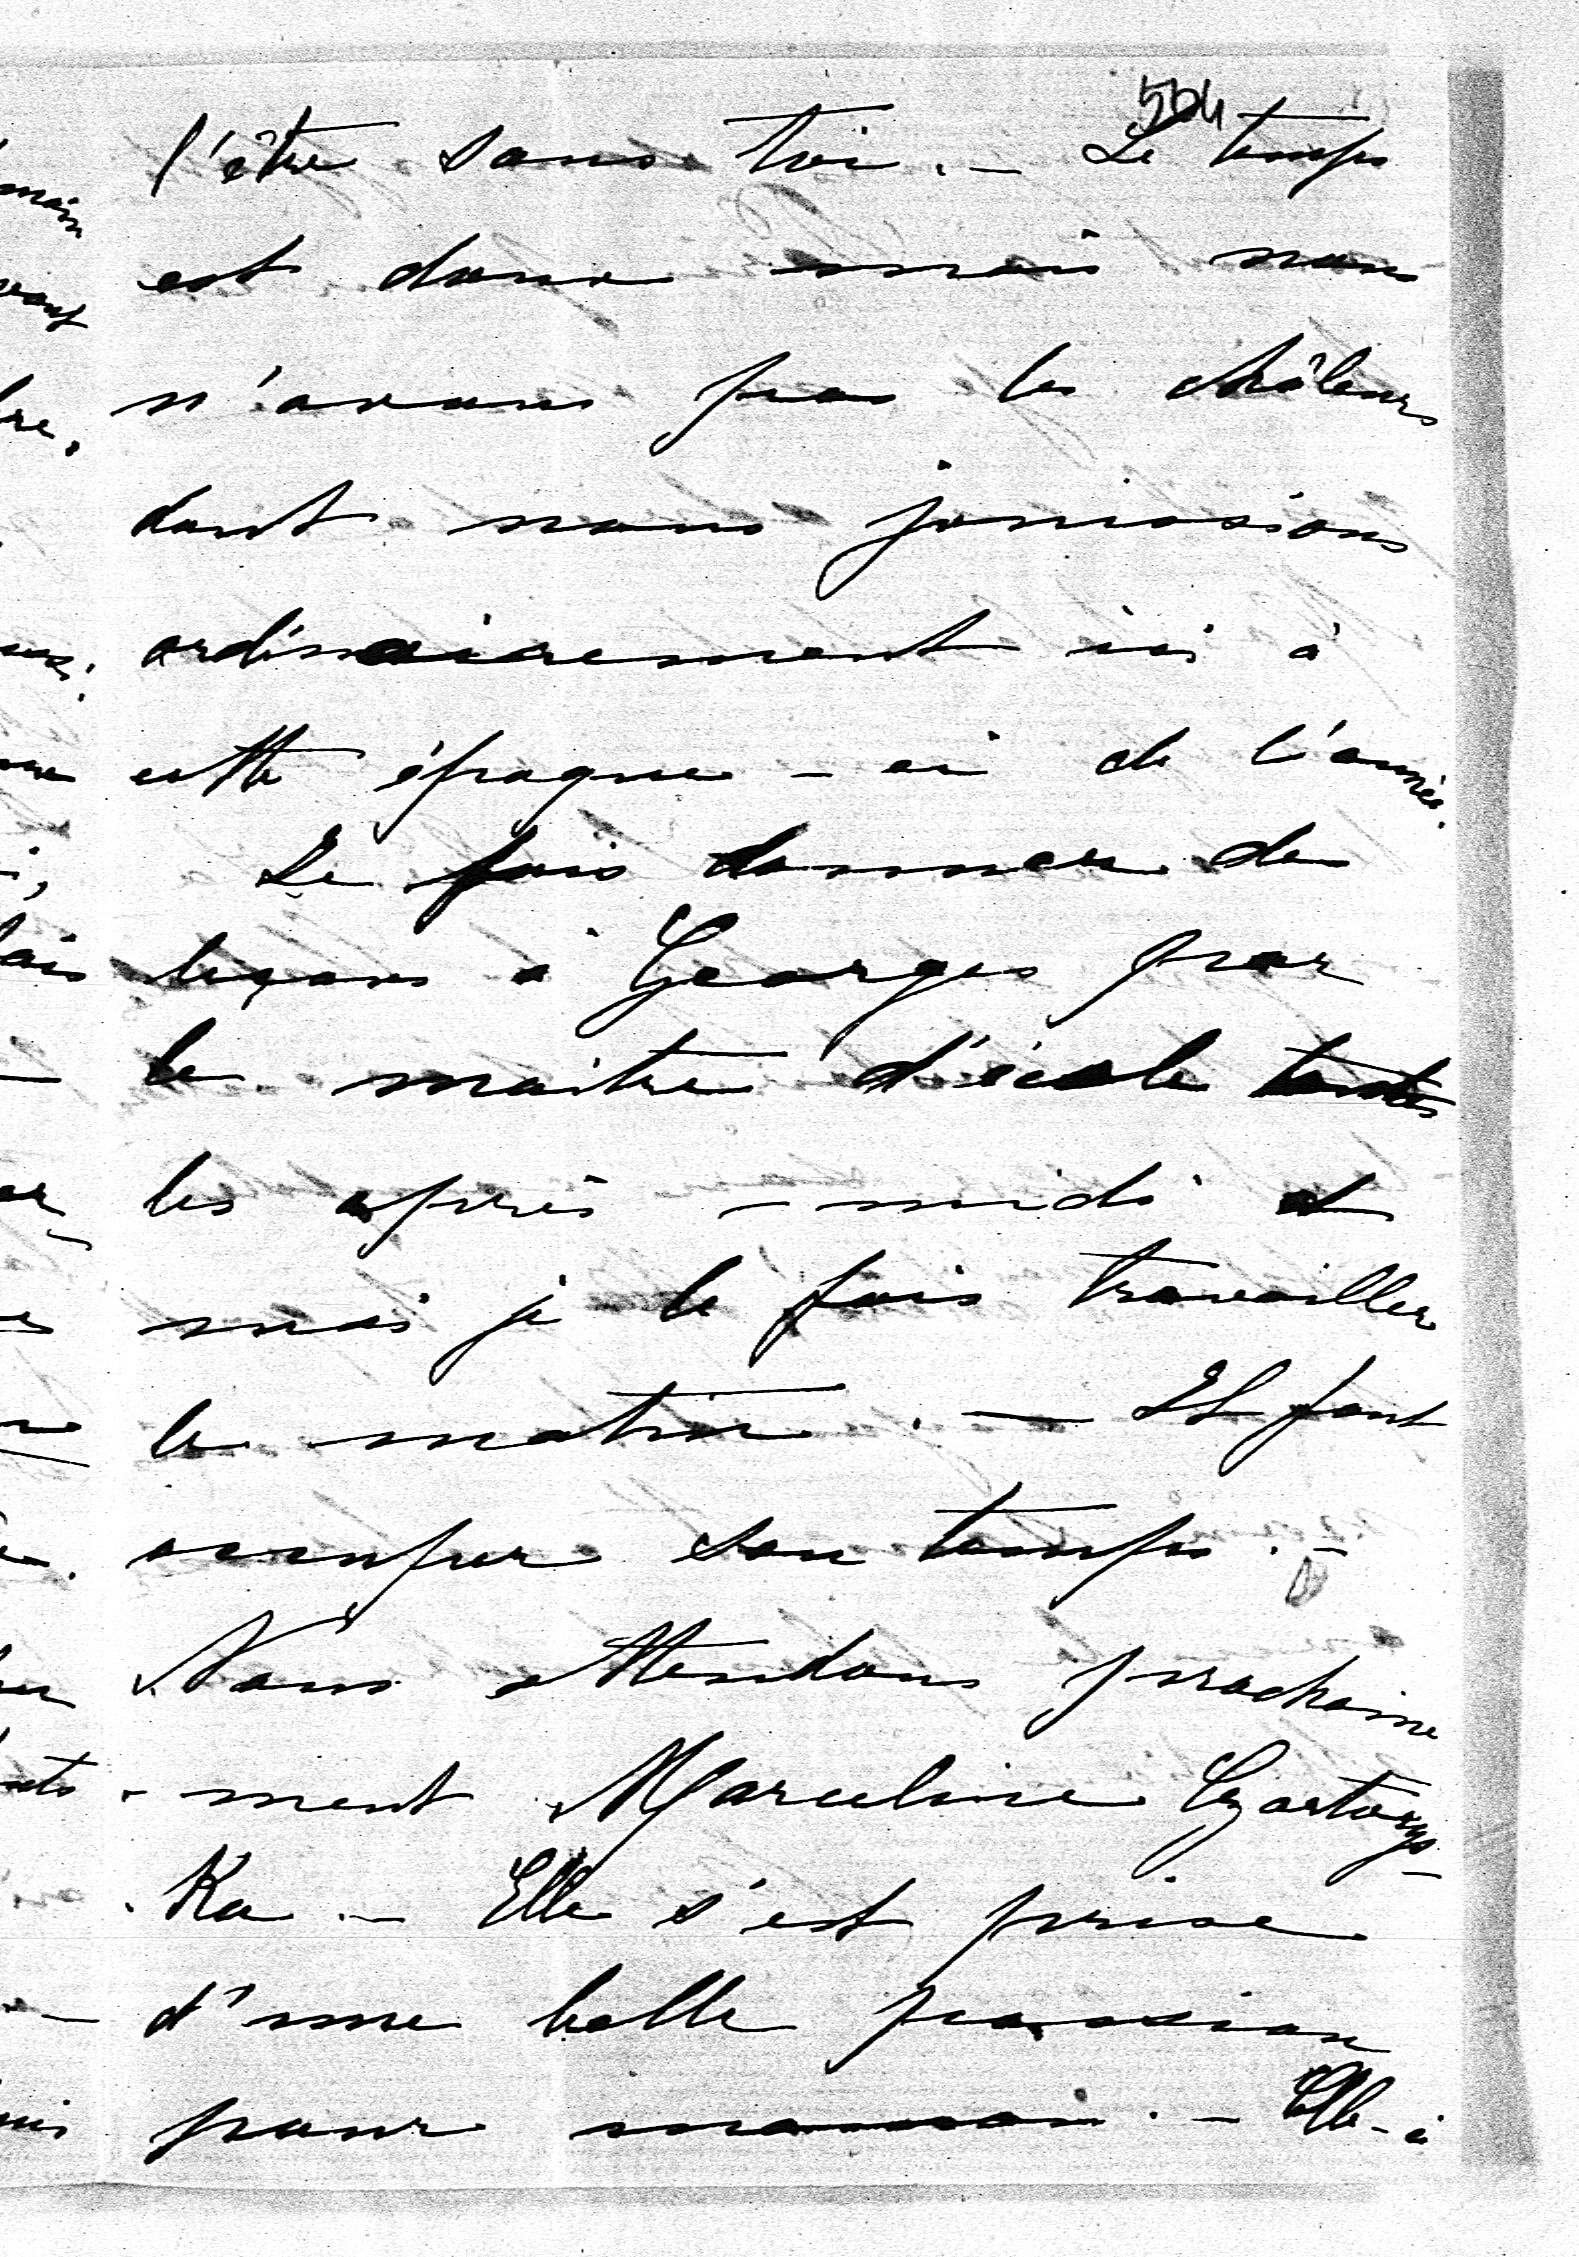 504
l'être sans toi. — Le temps
est doux mais nous
n'avons pas les châleurs
dont nous jouissions
ordinairement ici à
cette époque-ci de l'année.
Je fais donner des
leçons à Georges par
le maître d'école toutes
les après-midi et
moi je le fais travailler
le matin. — Il faut
occuper son temps. —
Nous attendons prochaine
-ment Marceline Czartorys-
-ka. — Elle s'est prise
d'une belle passion
pour maman. — Elle-ci